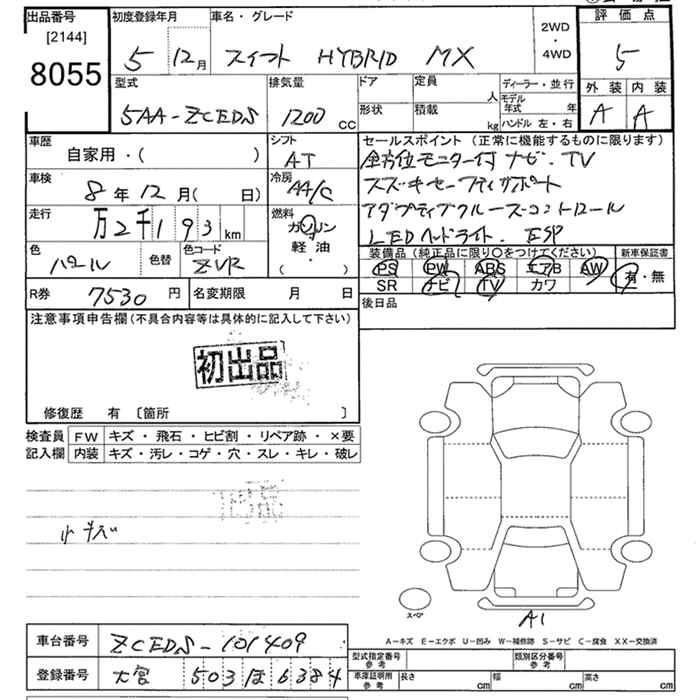 出品番号
[2144]
8055
初度登録年月
5 12月
車名・グレード
スイフト HYBRID MX
2WD
・
4WD
評価点
5
外装 内装
A A
型式
5AA-ZCEDS
排気量
1200 CC
ドア
形状
定員 人
積載 kg
ディーラー・並行
モデル年式 年
ハンドル 左・右
車歴
自家用・( )
シフト
AT
車検
8年12月( 日)
冷房
AA/C
走行
万2千193 km
燃料
ガソリン
軽油
( ・ )
色
パール
色替
色コード
ZVR
セールスポイント (正常に機能するものに限ります)
全方位モニター付ナビ、TV
スズキセーフティサポート
アダプティブクルーズコントロール
LEDヘッドライト. ESP
装備品(純正品に限り○をつけてください)
PS PW ABS エアB AW
SR ナビ TV カワ
新車保証書
有・無
R券 7530円
名変期限 月 日
後日品
注意事項申告欄(不具合内容等は具体的に記入して下さい)
初出品
修復歴 有 〔箇所 〕
検査員
記入欄
FW キズ・飛石・ヒビ割・リペア跡・×要
内装 キズ・汚レ・コゲ・穴・スレ・キレ・破レ
小キズ
スペア
A1
A-キズ E-エクボ U-凹み W-補修跡 S-サビ C-腐食 XX-交換済
車台番号 ZCEDS-101409
登録番号 大宮 503 ほ 6384
型式指定番号
参考
類別区分番号
参考
車庫証明用
参考
長さ cm
幅 cm
高さ cm